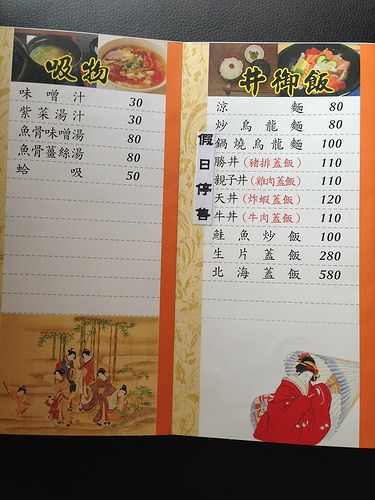 吸物
味噌汁 30
紫菜湯汁 30
魚骨味噌湯 80
魚骨薑絲湯 80
蛤吸 50
丼御飯
涼麵 80
炒烏龍麵 80
鍋燒烏龍麵 100
勝丼(豬排蓋飯) 110
親子丼(雞肉蓋飯) 110
天丼(炸蝦蓋飯) 120
牛丼(牛肉蓋飯) 110
鮭魚炒飯 100
生片蓋飯 280
北海蓋飯 580
假日停售